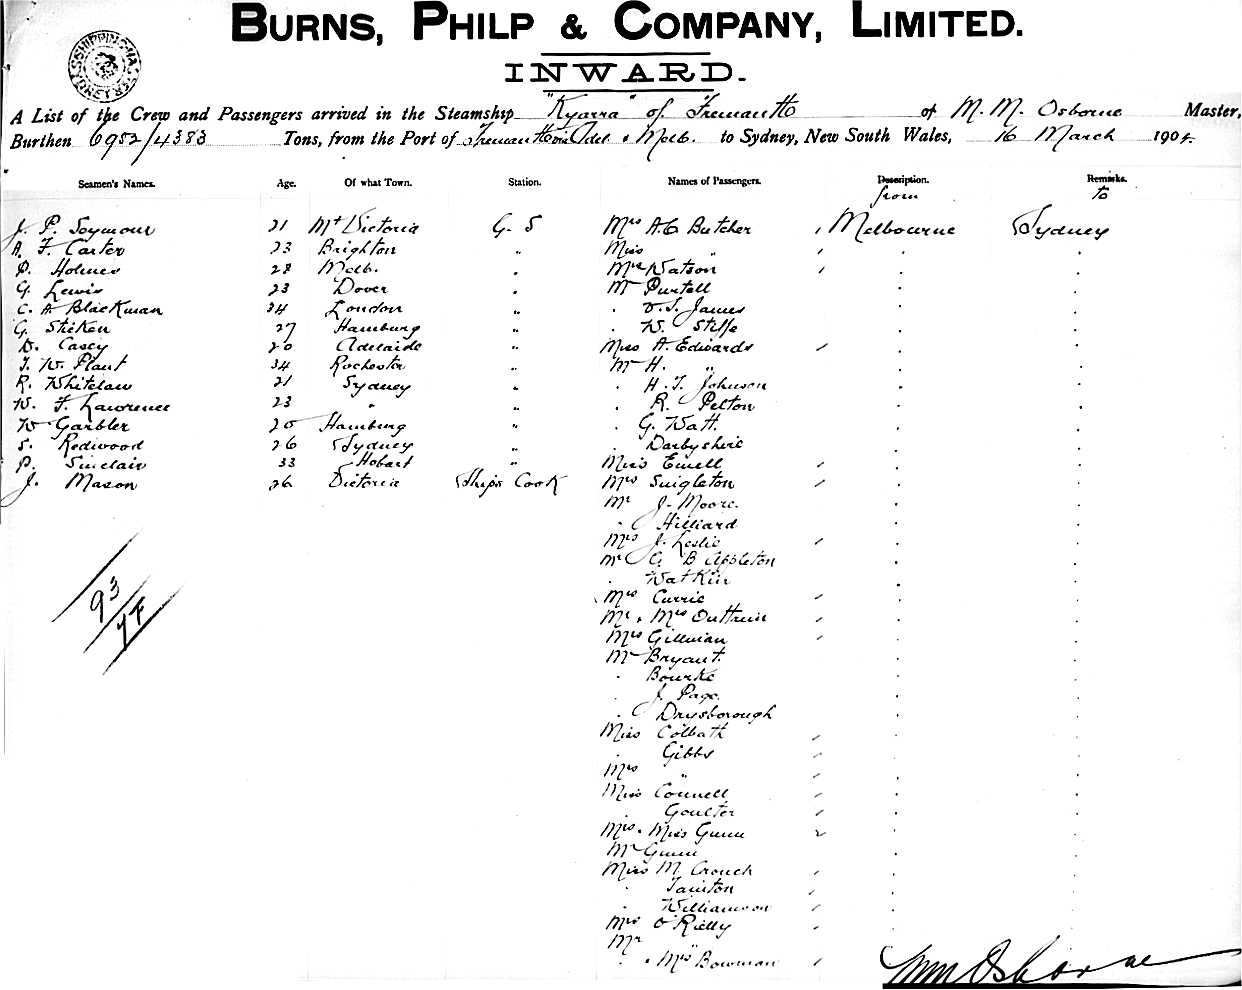 BURNS, PHILP & COMPANY, LIMITED.
INWARD.
A List of the Crew and Passengers arrived in the Steamship "Kyarra" of Fremantle of M. M. Osborne Master,
Burthen 6952/4383 Tons, from the Port of Fremantle via Adel. & Melb. to Sydney, New South Wales, 16 March 1904.
Seamen's Names. Age. Of what Town. Station. Names of Passengers. Description. Remarks.
from to
J. P. Seymour 21 Mt Victoria G. S Mrs A.C Butcher , Melbourne Sydney
A. F. Carter 23 Brighton " Miss "
P. Holmes 28 Melb. " Mrs Watson
G. Lewis 23 Dover " Mr Purtell
C. A Blackman 24 London " . D. S. James
G. Stieken 27 Hamburg " . W.
D. Casey 20 Adelaide " Miss A. Edwards
T. W. Plant 34 Rochester " Mr H. "
R. Whitelaw 21 Sydney " . H. T. Johnson
W. F. Lawrence 23 " " . R. Pelton
W Garbler 20 Hamburg " . G. Watt.
S. Redwood 26 Sydney " . Darbyshire
P. Sinclair 33 Hobart " Miss Ewell
J. Mason 26 Victoria Ship's Cook Mrs Singleton
Mr J. Moore.
. Hilliard
Mrs J. Leslie
Mr G. B Appleton
. Watkin
Mrs Currie
Mr & Mrs Outtrim
Mrs Gillman
Mr Bryant.
. Bourke
. J. Page.
. Drysborough
Miss Colbath
. Gibbs
Mrs "
Miss Connell
. Goulter
Mrs & Miss Gunn
Mr Gunn
Miss M Crouch
. Tainton
. Williamson
Mrs O'Rielly
Mr
. & Mrs Bowman
93
MM Osborne